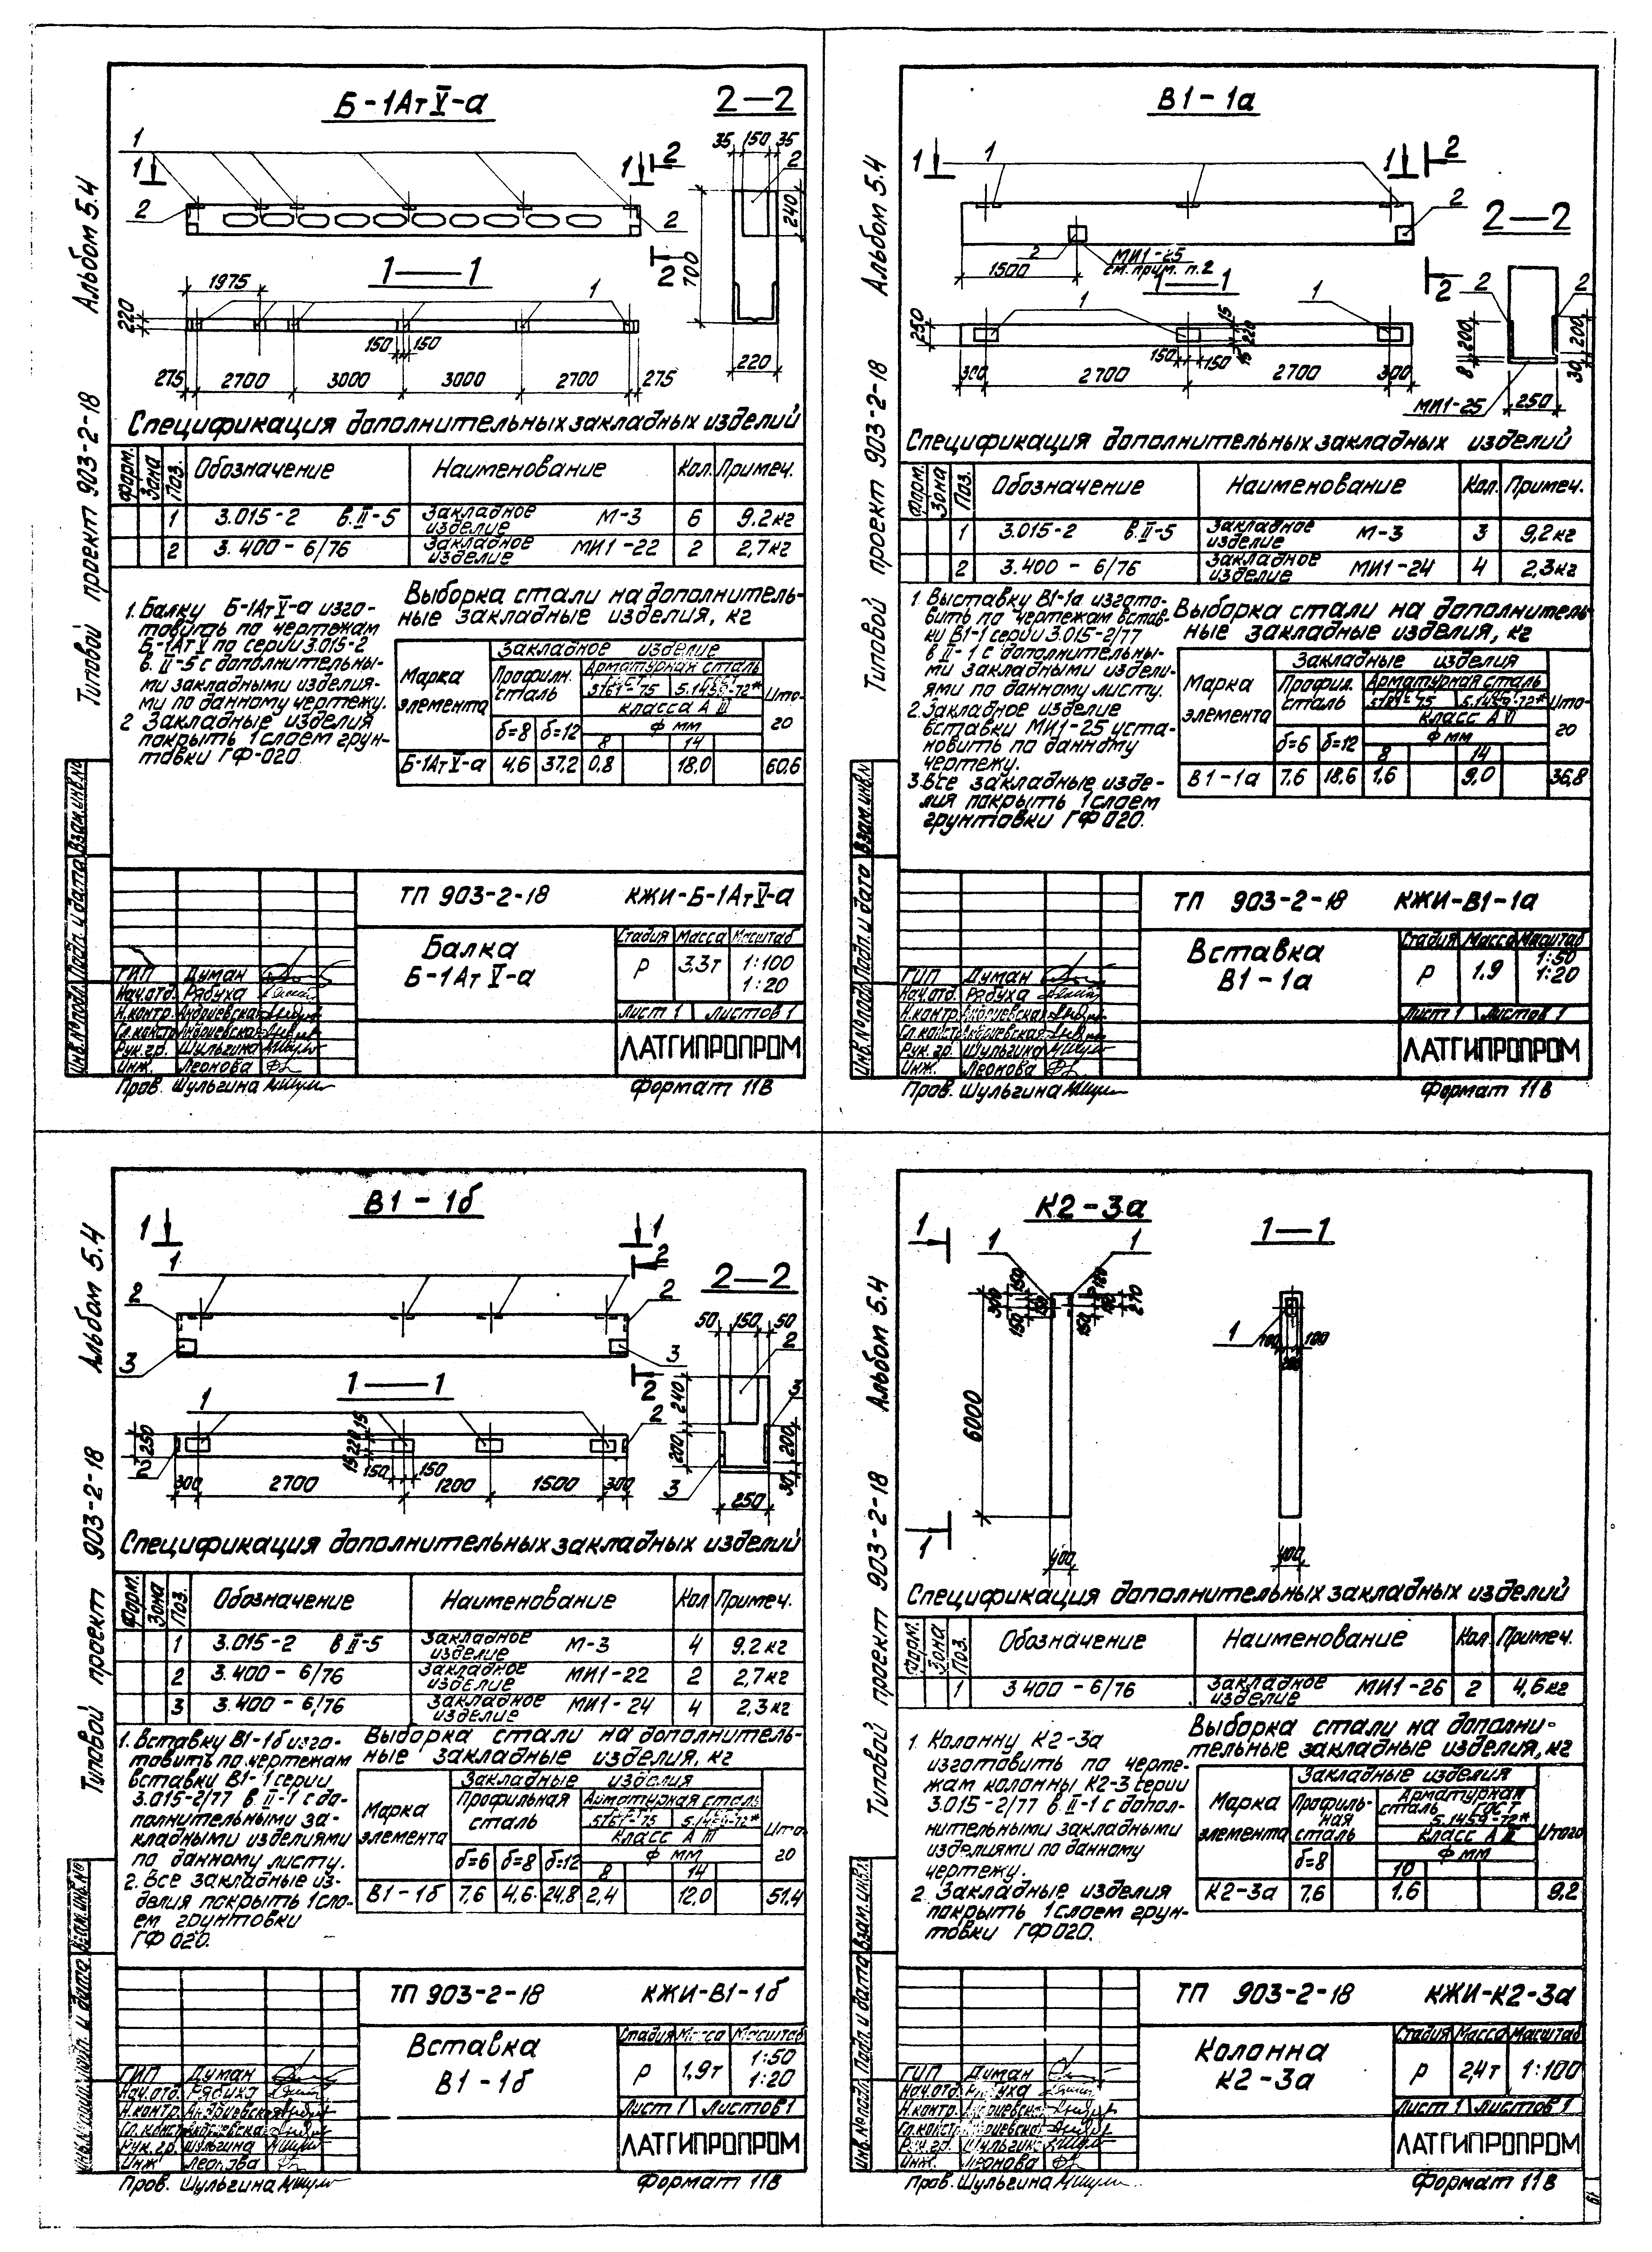 Б-1АтV-а
2—2
1
1
2
1
2
2
2
1—1
1975
1
220
150
150
275
2700
3000
3000
2700
275
35
150
35
2
240
700
220
Спецификация дополнительных закладных изделий
Форм.
Зона
Поз.
Обозначение
Наименование
Кол.
Примеч.
1 3.015-2 в.II-5 Закладное изделие М-3 6 9.2кг
2 3.400-6/76 Закладное изделие МИ1-22 2 2,7кг
1. Балку Б-1АтV-а изго-
товить по чертежам
Б-1АтV по серии 3.015-2
в. II-5 с дополнительны-
ми закладными изделия-
ми по данному чертежу.
2 Закладные изделия
покрыть 1 слоем грун-
товки ГФ-020.
Выборка стали на дополнитель-
ные закладные изделия, кг
Марка элемента
Закладное изделие
Профилн. сталь
Арматурная сталь
5781-75 5.1459-72*
класса А III
Ф мм
Итого
δ=8 δ=12 8 14
Б-1АтV-а 4,6 37,2 0,8 18,0 60,6
ТП 903-2-18 КЖИ-Б-1АтV-а
Балка
Б-1АтV-а
Стадия Масса Масштаб
Р 3,3т 1:100
1:20
Лист 1 Листов 1
ЛАТГИПРОПРОМ
ГИП Думан
Нач.отд. Рябуха
Н.контр. Андриевская
Гл.констр. Андриевская
Рук.гр. Шульгина
Инж. Леонова
Пров. Шульгина
Формат 11В
Типовой проект 903-2-18 Альбом 5.4
Инв.№подл. Подп. и дата Взам.инв.№
В1-1а
1
1
1
2
2
2
МИ1-25
см. прим. п.2
1500
1—1
2
2—2
1
1
250
15
220
15
150
150
300
2700
2700
300
2
2
200
8
200
30
МИ1-25
250
Спецификация дополнительных закладных изделий
Форм.
Зона
Поз.
Обозначение
Наименование
Кол.
Примеч.
1 3.015-2 в.II-5 Закладное изделие М-3 3 9,2кг
2 3.400-6/76 Закладное изделие МИ1-24 4 2,3кг
1. Выставку В1-1а изгото-
вить по чертежам встав-
ки В1-1 серии 3.015-2/77
в II-1 с дополнительны-
ми закладными издели-
ями по данному листу.
2. Закладное изделие
вставки МИ1-25 уста-
новить по данному
чертежу.
3. Все закладные изде-
лия покрыть 1 слоем
грунтовки ГФ 020.
Выборка стали на дополнитель-
ные закладные изделия, кг
Марка элемента
Закладные изделия
Профил. сталь
Арматурная сталь
5781-75 5.1459-72*
класс А III
Ф мм
Итого
δ=6 δ=12 8 14
В1-1а 7,6 18,6 1,6 9,0 36,8
ТП 903-2-18 КЖИ-В1-1а
Вставка
В1-1а
Стадия Масса Масштаб
Р 1.9 1:50
1:20
Лист 1 Листов 1
ЛАТГИПРОПРОМ
ГИП Думан
Нач.отд. Рябуха
Н.контр. Андриевская
Гл.констр. Андриевская
Рук.гр. Шульгина
Инж. Леонова
Пров. Шульгина
Формат 11В
Типовой проект 903-2-18 Альбом 5.4
Инв.№подл. Подп. и дата Взам.инв.№
В1-1б
1
1
1
2
2
2
3
3
2
1—1
1
2
2
250
15
220
15
150
150
300
2700
1200
1500
300
2—2
50
150
50
2
240
200
3
200
30
3
250
Спецификация дополнительных закладных изделий
Форм.
Зона
Поз.
Обозначение
Наименование
Кол
Примеч.
1 3.015-2 в II-5 Закладное изделие М-3 4 9,2кг
2 3.400-6/76 Закладное изделие МИ1-22 2 2,7кг
3 3.400-6/76 Закладное изделие МИ1-24 4 2,3кг
1. Вставку В1-1б изго-
товить по чертежам
вставки В1-1 серии
3.015-2/77 в II-1 с до-
полнительными за-
кладными изделиями
по данному листу.
2. Все закладные из-
делия покрыть 1 сло-
ем грунтовки
ГФ 020.
Выборка стали на дополнитель-
ные закладные изделия, кг
Марка элемента
Закладные изделия
Профильная сталь
Арматурная сталь
5781-75 5.1459-72*
Класс А III
Ф мм
Итого
δ=6 δ=8 δ=12 8 14
В1-1б 7,6 4,6 24,8 2,4 12,0 51,4
ТП 903-2-18 КЖИ-В1-1б
Вставка
В1-1б
Стадия Масса Масштаб
Р 1,9т 1:50
1:20
Лист 1 Листов 1
ЛАТГИПРОПРОМ
ГИП Думан
Нач.отд. Рябуха
Н.контр. Андриевская
Гл.констр. Андриевская
Рук.гр. Шульгина
Инж Леонова
Пров. Шульгина
Формат 11В
Типовой проект 903-2-18 Альбом 5.4
К2-3а
1—1
1
1
1
300
150
150
150
150
270
6000
1
400
1
100
100
400
Спецификация дополнительных закладных изделий
Форм.
Зона
Поз.
Обозначение
Наименование
Кол.
Примеч.
1 3 400-6/76 Закладное изделие МИ1-26 2 4,6кг
1. Колонну К2-3а
изготовить по черте-
жам колонны К2-3 серии
3.015-2/77 в.II-1 с допол-
нительными закладными
изделиями по данному
чертежу.
2. Закладные изделия
покрыть 1 слоем грун-
товки ГФ 020.
Выборка стали на дополни-
тельные закладные изделия, кг
Марка элемента
Закладные изделия
Профиль-
ная
сталь
Арматурная
сталь ГОСТ
5.1459-72*
Класс А III
Ф мм
Итого
δ=8 10
К2-3а 7,6 1,6 9,2
ТП 903-2-18 КЖИ-К2-3а
Колонна
К2-3а
Стадия Масса Масштаб
Р 2,4т 1:100
Лист 1 Листов 1
ЛАТГИПРОПРОМ
ГИП Думан
Нач.отд. Рябуха
Н.контр. Андриевская
Гл.констр. Андриевская
Рук.гр. Шульгина
Инж. Леонова
Пров. Шульгина
Формат 11В
Типовой проект 903-2-18 Альбом 5.4
Инв.№подл. Подп. и дата Взам.инв.№
19